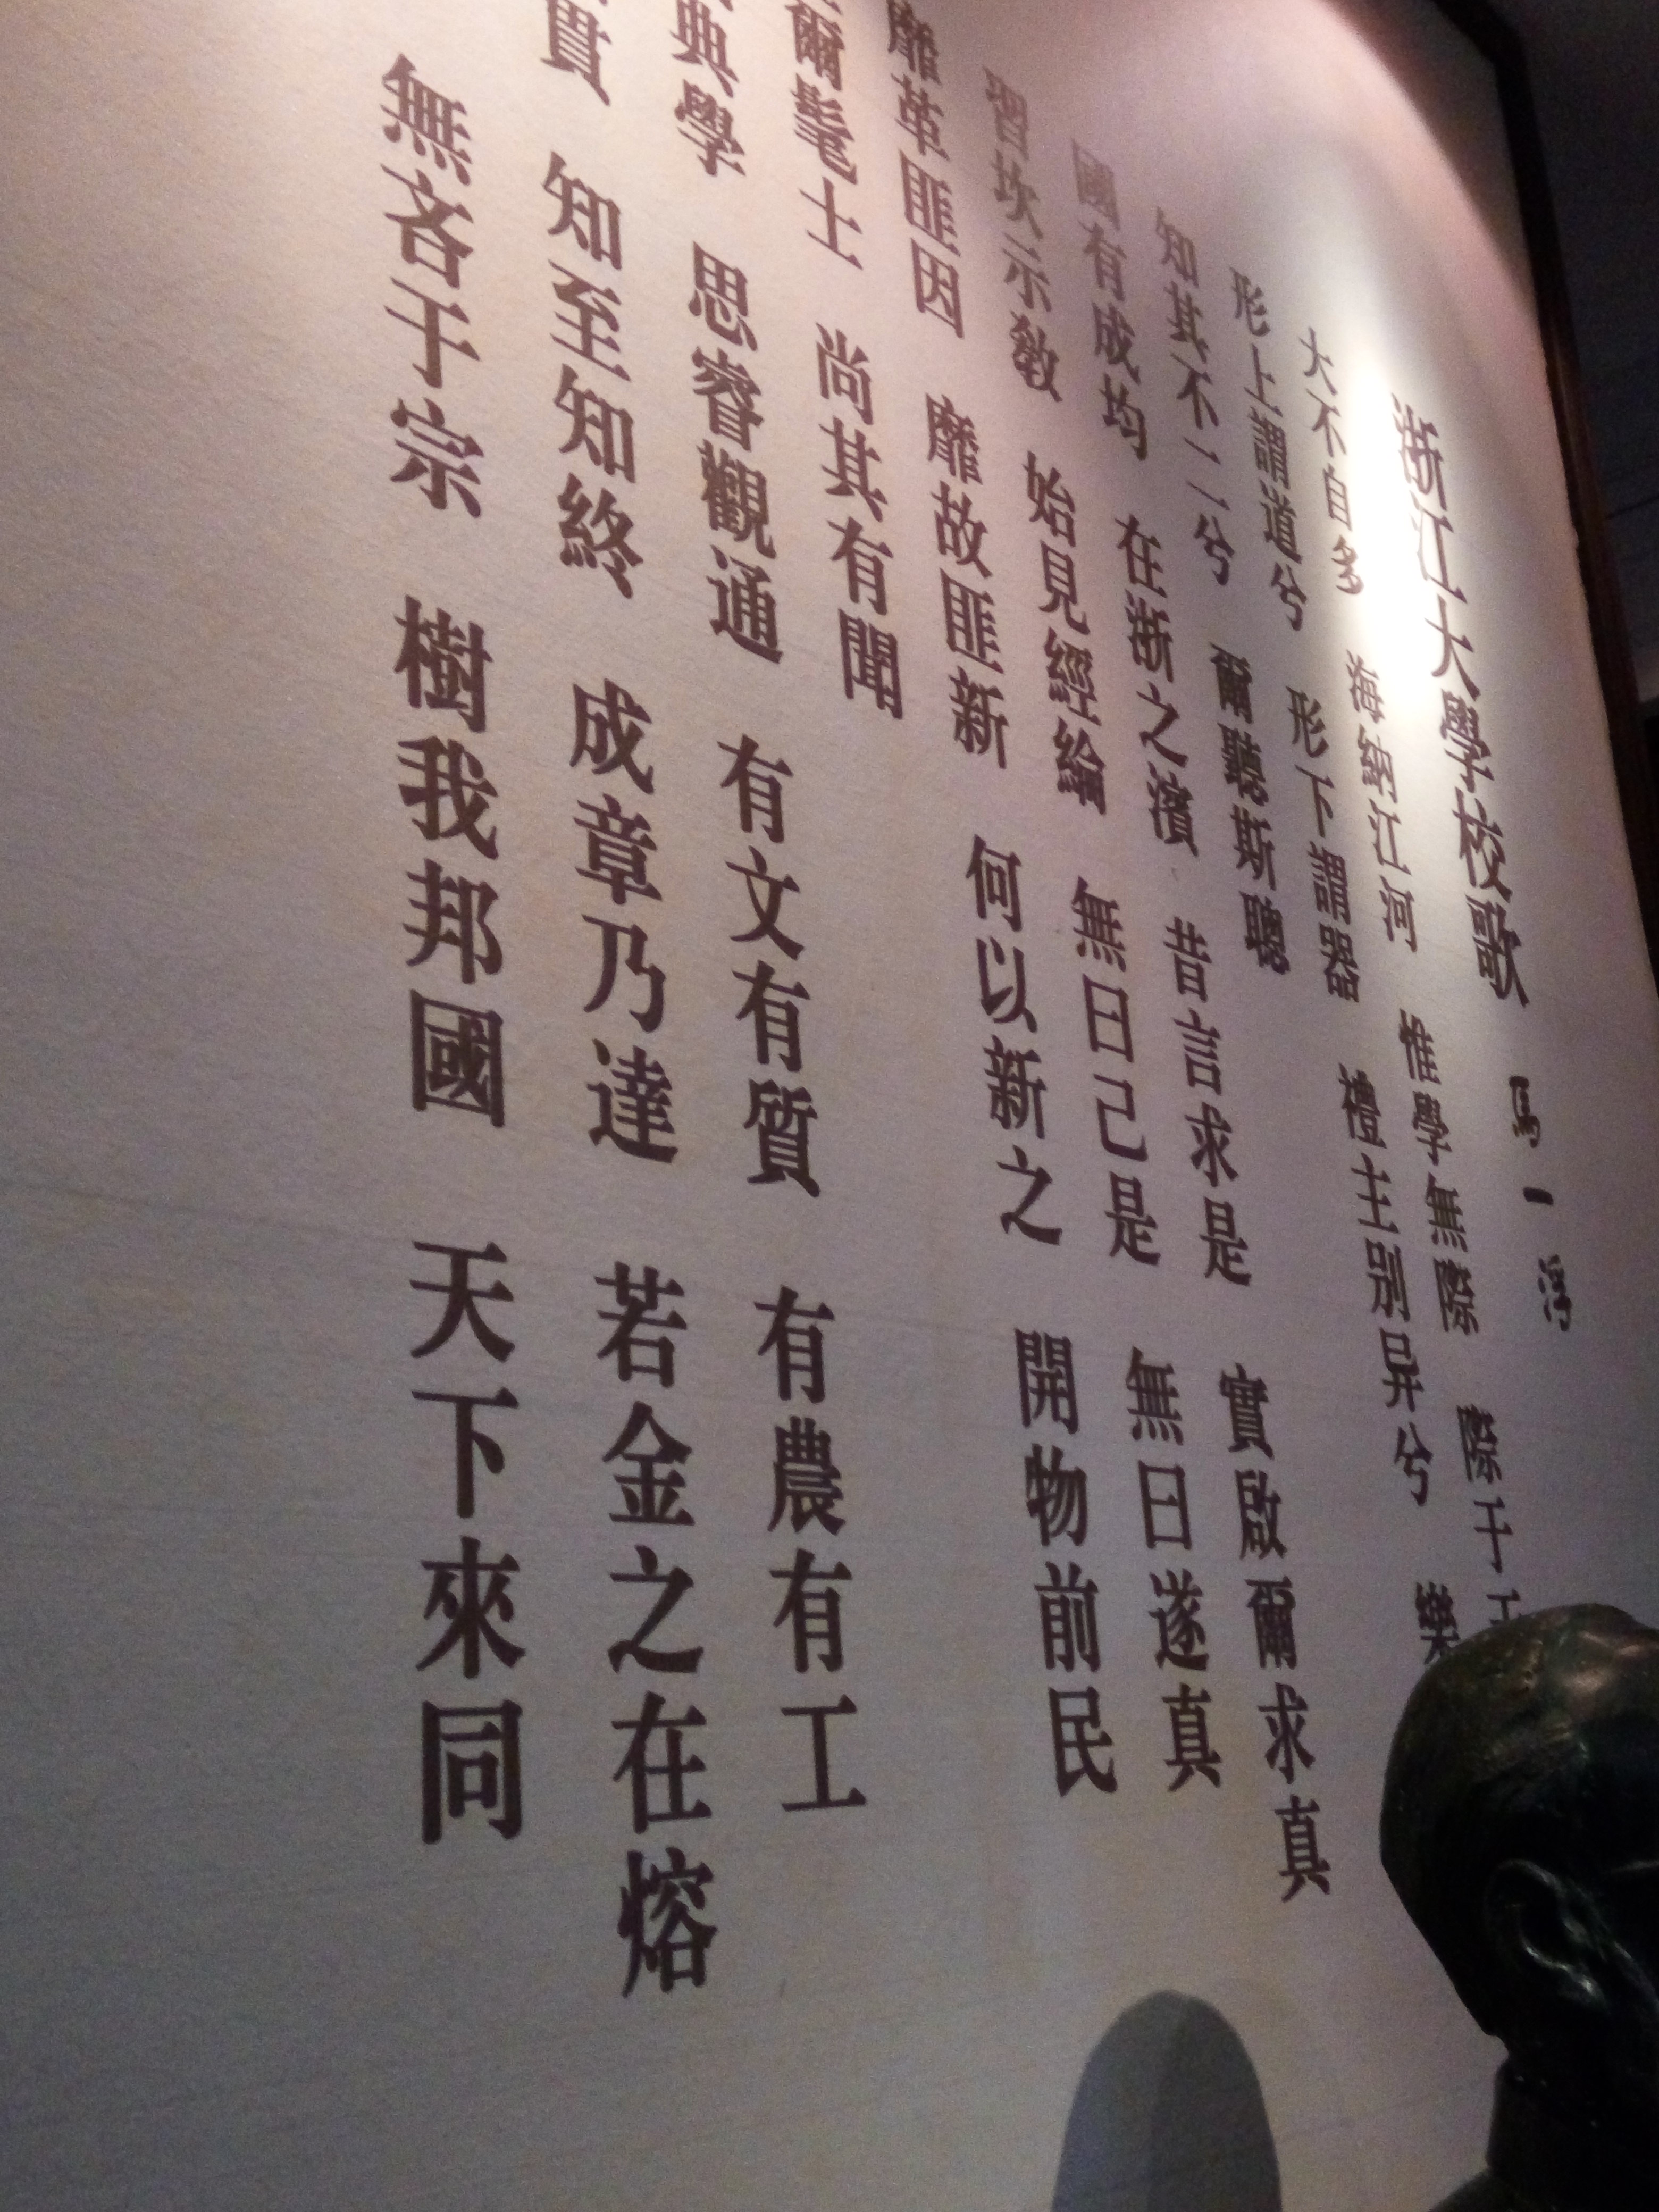 浙江大學校歌 馬一浮
大不自多 海納江河 惟學無際 際于
形上謂道兮 形下謂器 禮主別异兮 樂
知其不二兮 爾聽斯聰
國有成均 在浙之濱 昔言求是 實啟爾求真
習坎示教 始見經綸 無曰己是 無曰遂真
靡革匪因 靡故匪新 何以新之 開物前民
爾髦士 尚其有聞
典學 思睿觀通 有文有質 有農有工
貫 知至知終 成章乃達 若金之在熔
無吝于宗 樹我邦國 天下來同